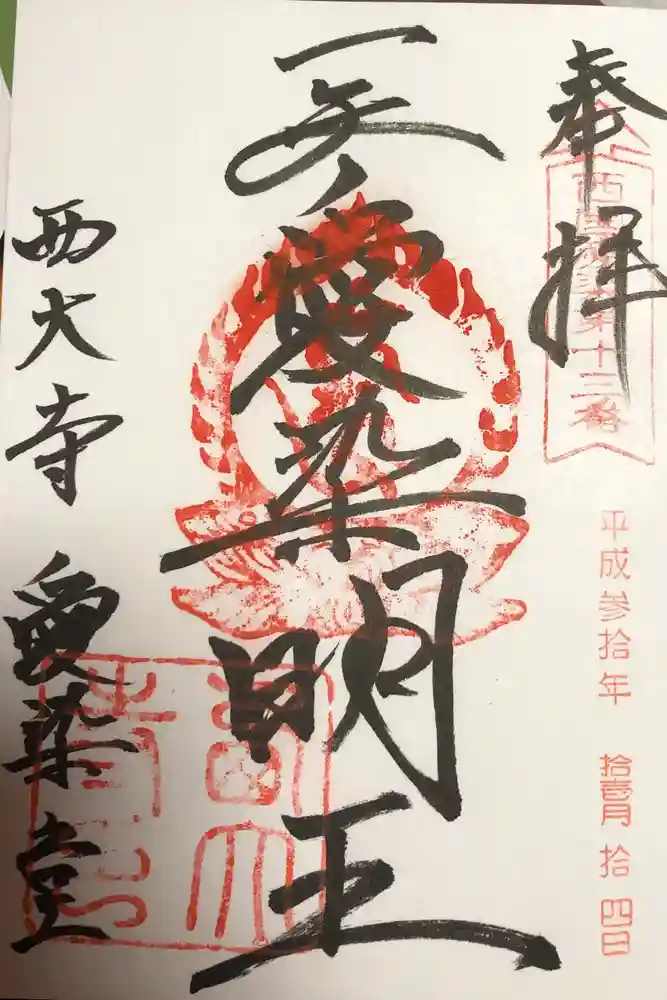 奉拝
西国愛染第十三番
平成参拾年 拾壹月 拾四日
愛染明王
西大寺 愛染堂